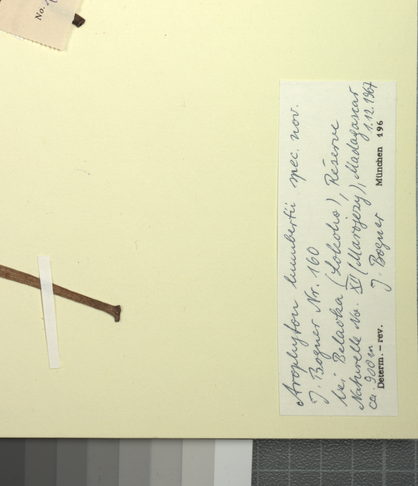 No.
Arophyton humbertii spec. nov.
J. Bogner Nr. 160
bei Belaoka (Lokoho), Réserve
Naturelle No. XII (Marojezy), Madagascar
ca. 900 m 1.12.1967
J. Bogner
Determ. – rev. München 196